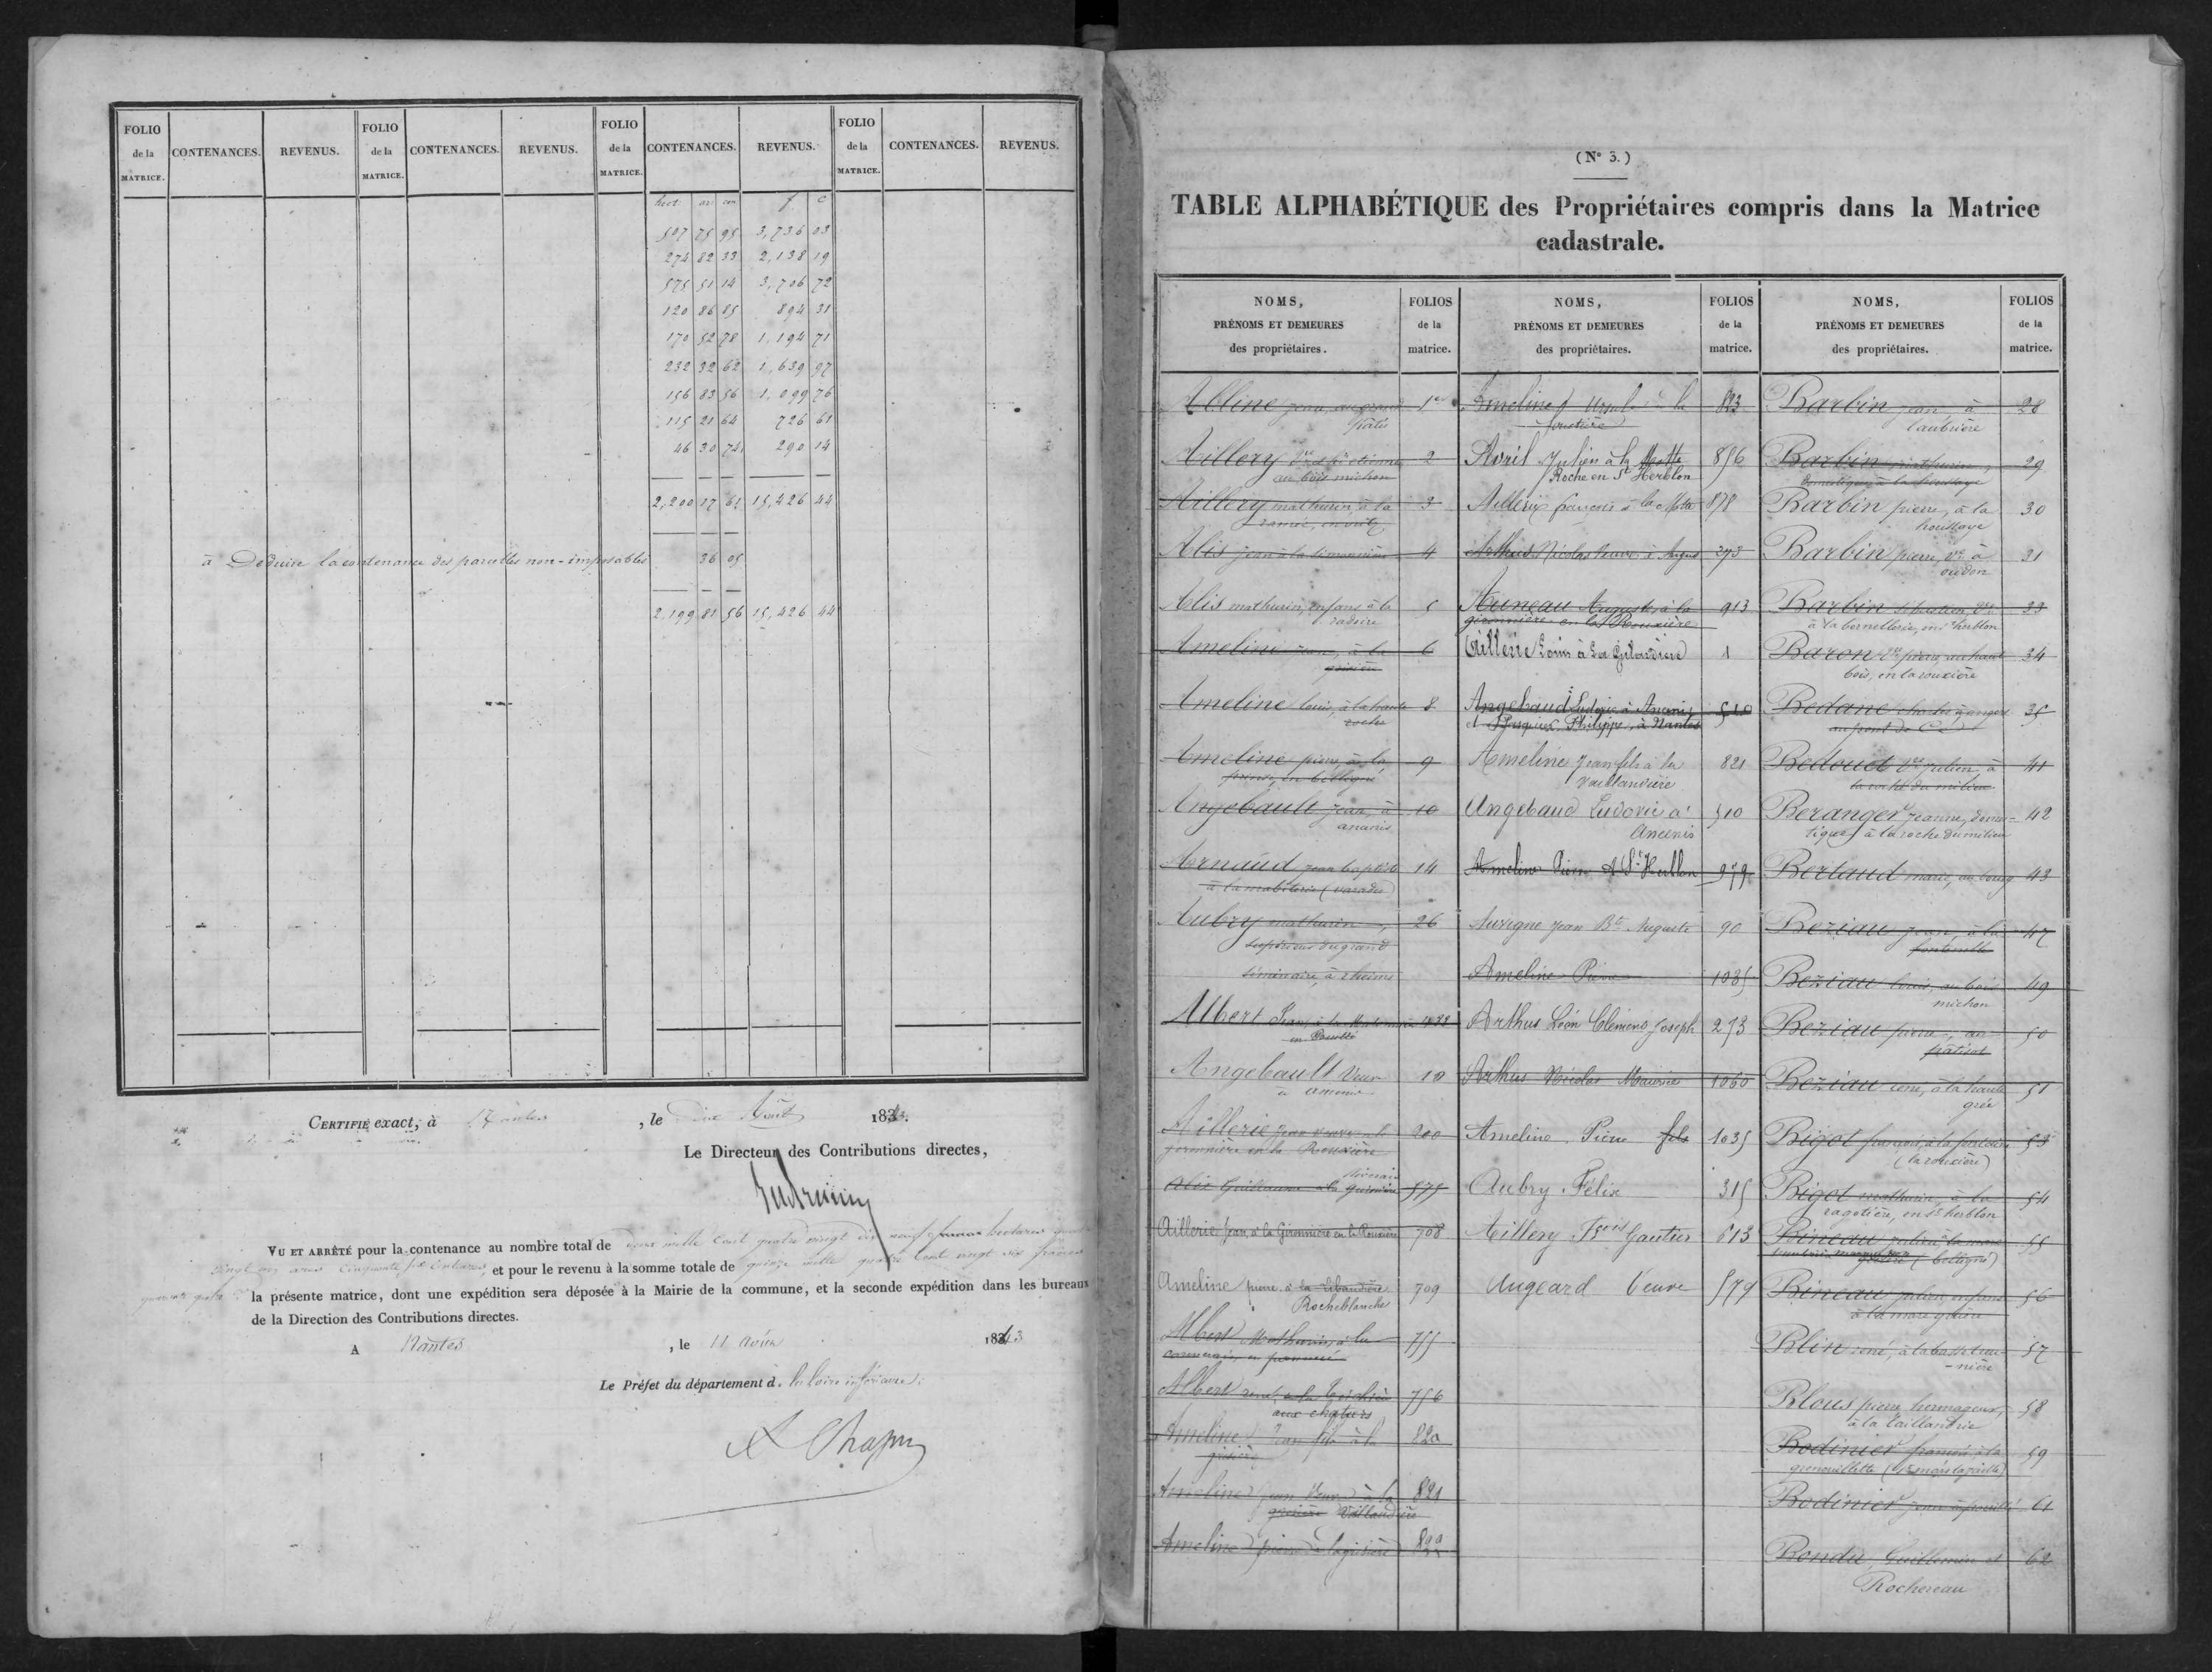 FOLIO de la MATRICE. CONTENANCES. REVENUS. FOLIO de la MATRICE. CONTENANCES. REVENUS. FOLIO de la MATRICE. CONTENANCES. REVENUS. FOLIO de la MATRICE. CONTENANCES. REVENUS.
hect ar cen f c
507 75 95 3,736 03
274 82 33 2,138 19
575 51 14 3,706 72
120 86 85 894 31
170 52 78 1,194 71
232 32 62 1,639 97
156 83 56 1,099 76
115 21 64 726 61
46 30 74 290 14
2,200 17 61 15,426 44
à Déduire la contenance des parcelles non-imposables 36 05
2,199 81 56 15,426 44
CERTIFIÉ exact, à Nantes, le dix Août 184
Le Directeur des Contributions directes,
VU ET ARRÊTÉ pour la contenance au nombre total de deux mille cent quatre vingt dix neuf hectares quatre
vingt un ares cinquante six centiares, et pour le revenu à la somme totale de quinze mille quatre cent vingt six francs
quarante quatre c. la présente matrice, dont une expédition sera déposée à la Mairie de la commune, et la seconde expédition dans les bureaux
de la Direction des Contributions directes.
A Nantes, le 11 août 1843
Le Préfet du département d. la loire inférieure.
A Chaper
(N° 3.)
TABLE ALPHABÉTIQUE des Propriétaires compris dans la Matrice
cadastrale.
NOMS, PRÉNOMS ET DEMEURES des propriétaires. FOLIOS de la matrice. NOMS, PRÉNOMS ET DEMEURES des propriétaires. FOLIOS de la matrice. NOMS, PRÉNOMS ET DEMEURES des propriétaires. FOLIOS de la matrice.
Alline jean, au grand
Patis 1er
Aillery
au bois michon 2
Aillery mathurin, à la 3
Alis jean à la simonnière 4
Alis mathurin, enfans à la 5
Ameline jean, à la
grisière 6
Ameline louis, à la haute
roche 8
Ameline pierre, à la 9
Angebault jean, à
ancenis 10
Arnaud jean baptiste
(varades) 14
Aubry mathurin,
supérieur du grand
séminaire, à rheims 26
Albert Jean, à la
en Pouillé
Angebault Veuve
à ancenis 10
Aillerie
en la Rouxière 200
Alis Guillaume 575
Aillerie Jean, à la Gironnière en la Rouxière 708
Ameline pierre à la
Rocheblanche 709
Albert Mathurin, à la 755
Albert rené,
aux chatiers 756
Ameline Jean fils à la
grisière 820
Ameline jean Veuve à la
grisière 821
Ameline pierre à la grisière 822
Ameline Ursule à la 823
Avril Julien à la Motte
Roche en St Herblon 856
Aillerie françois à la Motte 878
Arthus Nicolas 273
Auneau Auguste à la
gironnière en la Rouxière 913
Aillerie Louis à La Gilardière 1
Angebaud Ludovic à Ancenis
et Philippe, à Nantes 510
Ameline Jean fils à la
Vaillandière 821
Angebaud Ludovic à
Ancenis 510
Ameline Pierre à St Herblon 979
Auvigne Jean Bte Auguste 90
Ameline Pierre 1035
Arthus Léon Clément Joseph 273
Arthus Nicolas Maurice 1060
Ameline Pierre fils 1035
Aubry Félix 315
Aillery Fcois Gautier 613
Augeard Veuve 579
Barbin jean, à
l'aubrière 28
Barbin mathurin,
domestique, à la houssaye 29
Barbin pierre, à la
houssaye 30
Barbin pierre, Ve à
oudon 31
Barbin sébastien, Ve
à la bernellerie, en St herblon 33
Baron Ve pierre, au haut
bois, en la rouxière 34
Bedane charles, à angers
au pont de Cé 35
Bedouet Ve julien à
la roche du milieu 41
Beranger jeanne, domes-
tique, à la roche du milieu 42
Bertaud marie, au bourg 43
Beziau jean, à la
fontenelle 47
Beziau louis, au bois
michon 49
Beziau pierre, au
patissot 50
Beziau rené, à la haute
grée 51
Bigot françois, à la
(la rouxière) 53
Bigot mathurin, à la
ragotière, en St herblon 54
Bineau julien,
(belligné) 55
Bineau julien, enfans
à la mare guérin 56
Blin rené, à la basse
-nière 57
Blous pierre, hermageur,
à la taillandrie 58
Bodinier françois à la
grenouillette (St mars la jaille) 59
Bodinier jean à pouillé 61
Bondu Guillaume et
Rochereau 62